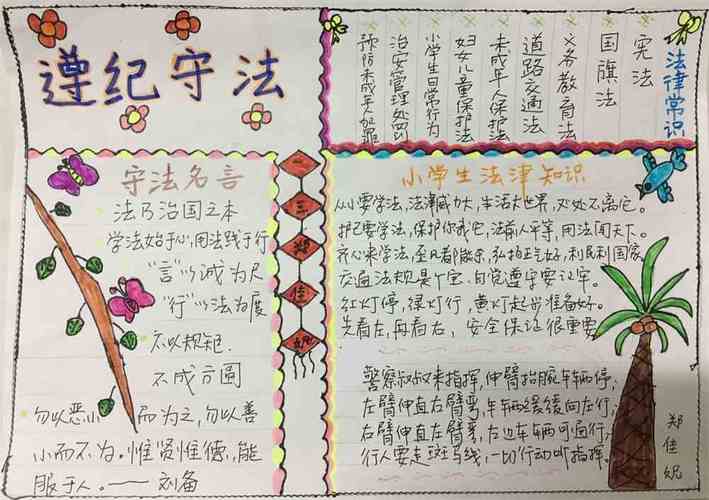 遵纪守法
法律常识
宪法
国旗法
义务教育法
道路交通法
未成年人保护法
妇女儿童保护法
小学生日常行为
治安管理处罚
预防未成年人犯罪
守法名言
法乃治国之本
学法始于心,用法践于行
“言”以诚为尺
“行”以法为度
不以规矩.
不成方圆
勿以恶小而为之,勿以善
小而不为。惟贤惟德,能
服于人。——刘备
二
三
郑
佳
妮
小学生法律知识
从小要学法,法律威力大,生活大世界,处处不离它。
护已要学法,保护你我它,法前人平等,用法闯天下。
齐心来学法,至凡都敞亲,弘扬正气好,利民利国家
交通法规是个宝.自觉遵守要记牢。
红灯停,绿灯行,黄灯起步准备好。
先看左,再看右,安全保证很重要
警察叔叔来指挥,伸臂抬腕车辆停,
左臂伸直右臂弯,车辆缓缓向左行,
右臂伸直左臂弯,右边车辆可通行,
行人要走斑马线,一切行动听指挥。
郑佳妮